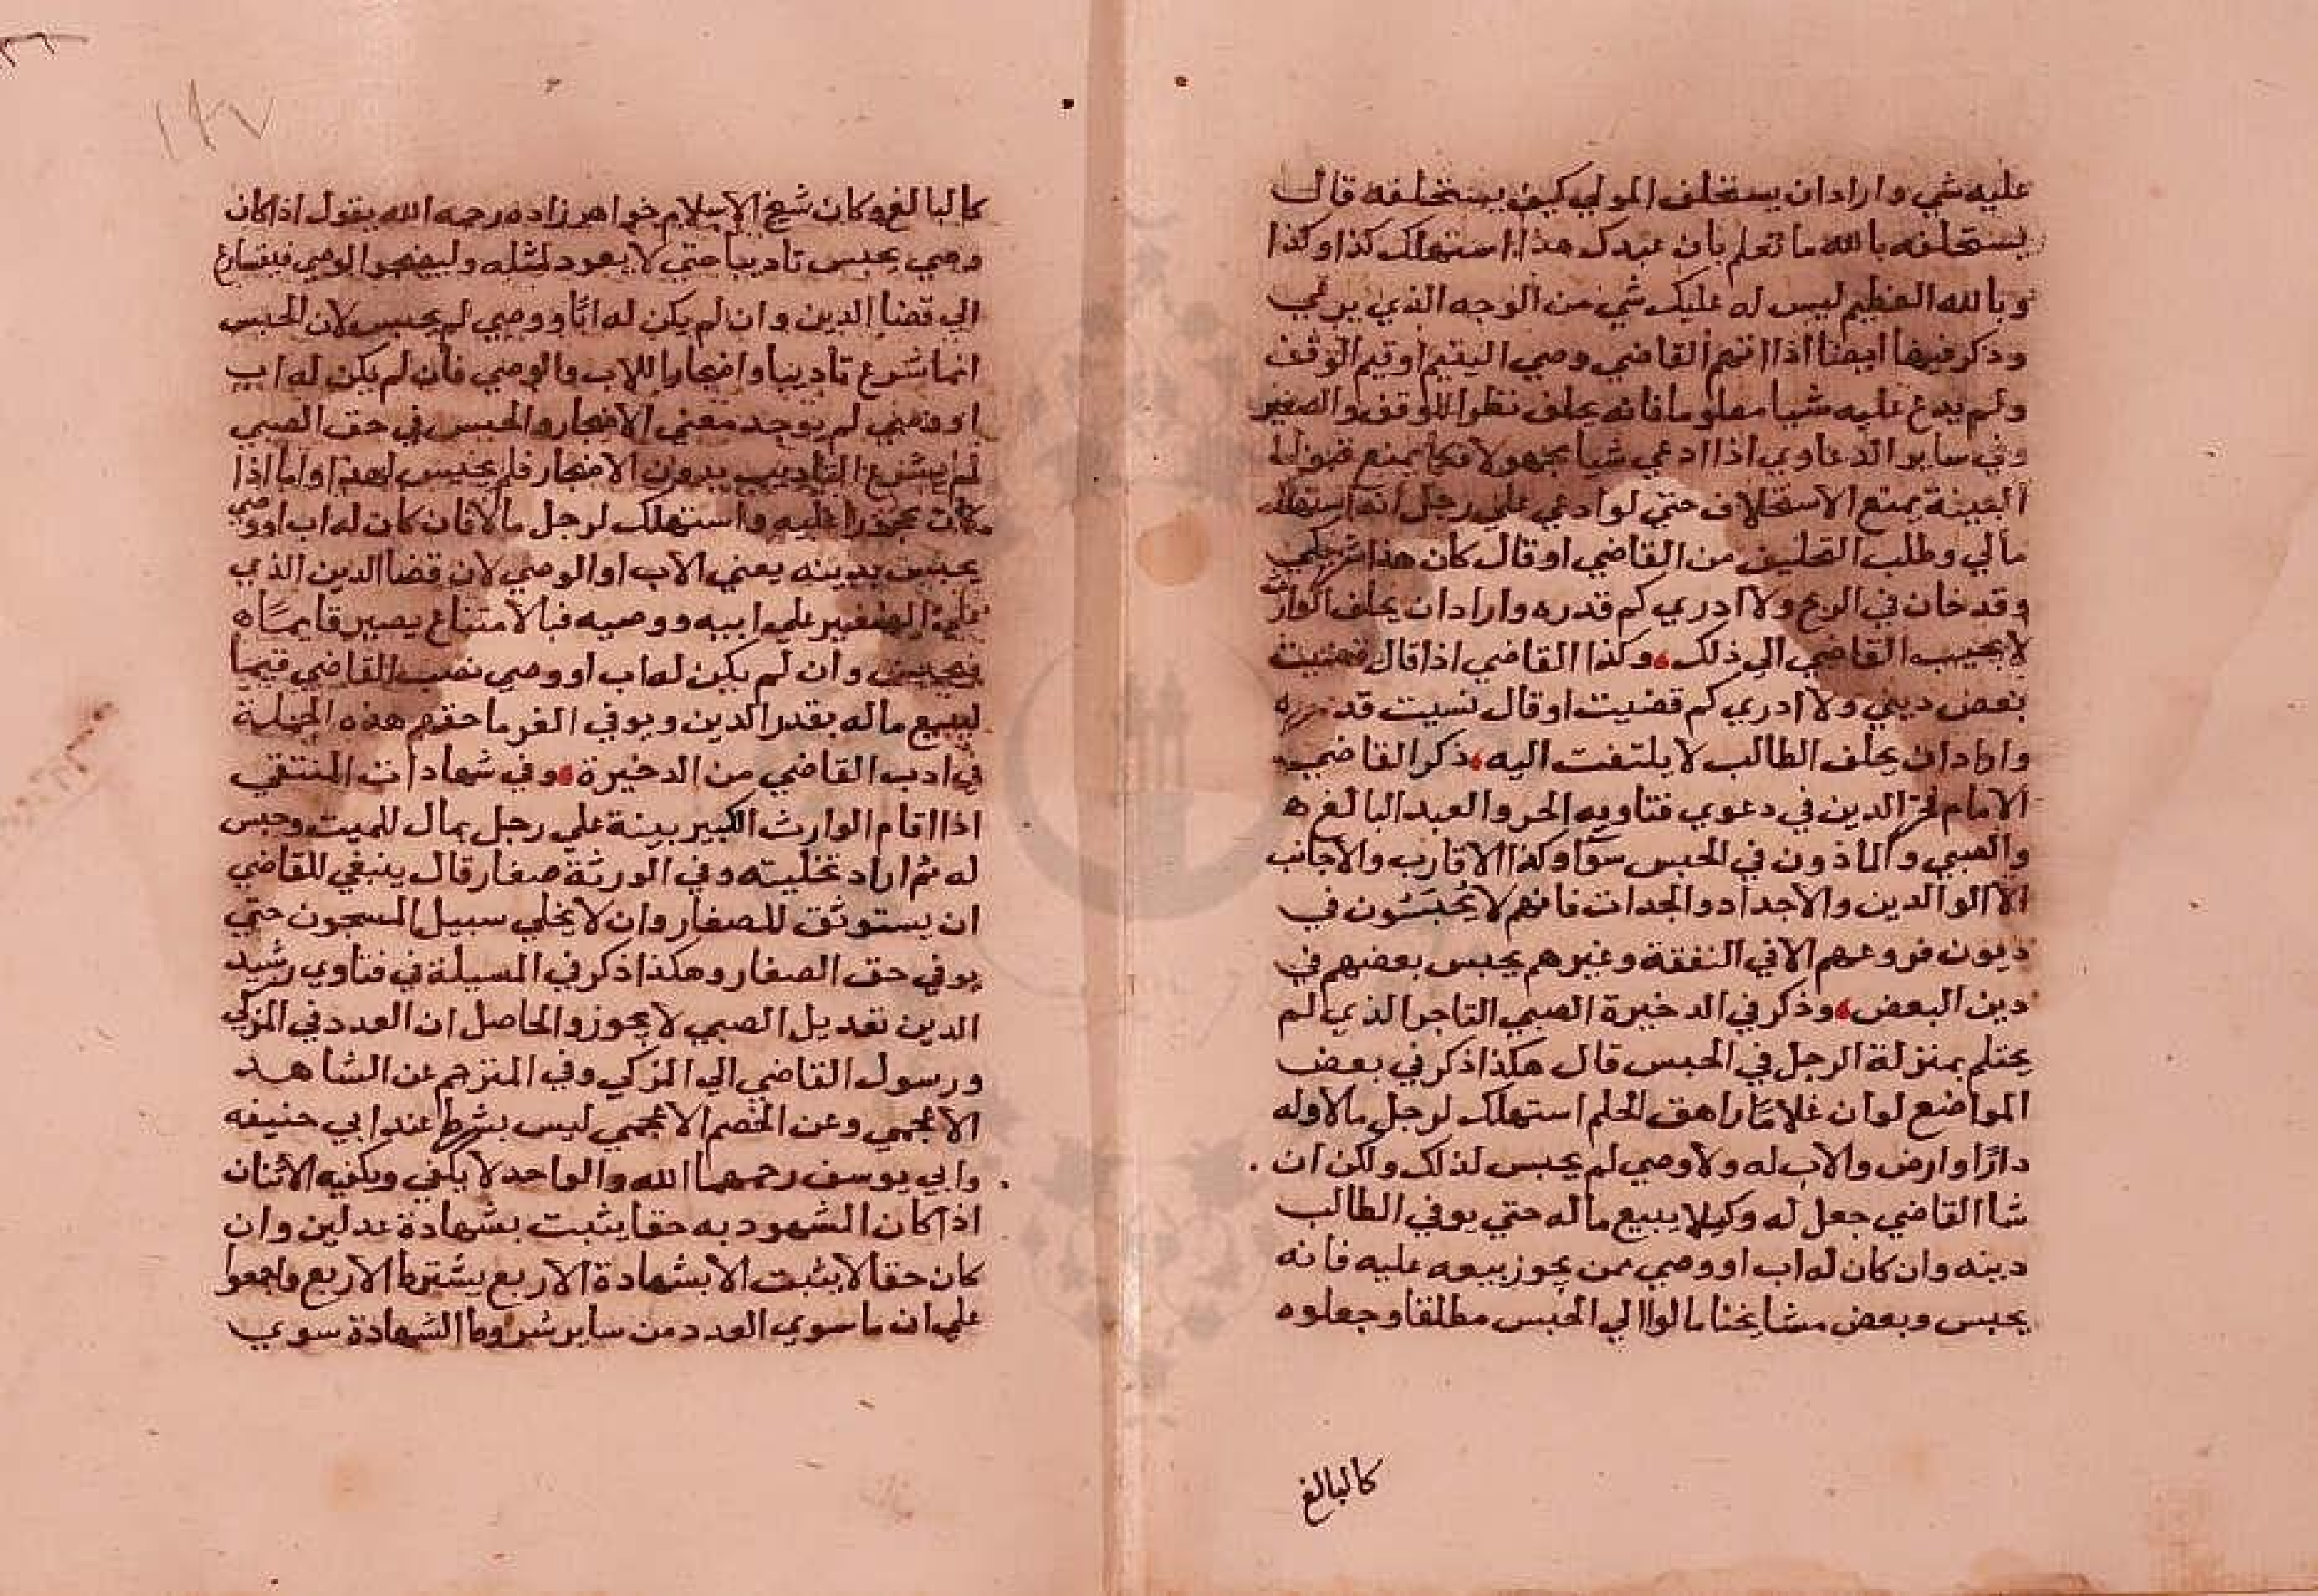 عليه شي واراد ان يستحلف المولي كيف يستحلفه قال
يستحلفه بالله ما تعلم بان عبدك هذا استهلك كذا وكذا
وبالله العظيم ليس له عليك شي من الوجه الذي يدعي
وذكر فيها ايضا اذا اتهم القاضي وصي اليتيم او قيم الوقف
ولم يدع عليه شيا معلوما فانه يحلف نظرا للوقف والصغير
وفي ساير الدعاوي اذا ادعي شيا مجهولا فكما يمنع قبول
البينة يمنع الاستحلاف حتي لو ادعي علي رجل انه استهلك
مالي وطلب التحليف من القاضي او قال كان هذا شريكي
وقد خان في الربح ولا ادري كم قدره واراد ان يحلف الوارث
لا يجيب القاضي الي ذلك وكذا القاضي اذا قال قضيت
بعض ديني ولا ادري كم قضيت او قال نسيت قدره
واراد ان يحلف الطالب لا يلتفت اليه ذكر القاضي
الامام فخر الدين في دعوي فتاويه الحر والعبد البالغ
والصبي والماذون في الحبس سوا وكذا الاقارب والاجانب
الا الوالدين والاجداد والجدات فانهم لا يحبسون في
ديون فروعهم الا في النفقة وغيرهم يحبس بعضهم في
دين البعض وذكر في الدخيرة الصبي التاجر الذي لم
يحتلم بمنزلة الرجل في الحبس قال هكذا ذكر في بعض
المواضع لو ان غلاما راهق الحلم استهلك لرجل مالا وله
دارًا وارض ولا اب له ولا وصي لم يحبس لذلك ولكن ان
شا القاضي جعل له وكيلا يبيع ماله حتي يوفي الطالب
دينه وان كان له اب او وصي ممن يجوز بيعه عليه فانه
يحبس وبعض مشايخنا مالوا الي الحبس مطلقا وجعلوه
كالبالغ
١٨٧
كالبالغ وكان شيخ الاسلام خواهر زاده رحمه الله يقول اذا كان
وصي يحبس تاديبا حتي لا يعود لمثله وليضجر الوصي فيتسارع
الي قضا الدين وان لم يكن له ابًا ووصي لم يحبس لان الحبس
انما شرع تاديبا واضجارا للاب والوصي فان لم يكن له اب
او وصي لم يوجد معني الاضجار والحبس في حق الصبي
لم يشرع التاديب بدون الاضجار فلم يحبس لهذا واما اذا
كان محجورا عليه واستهلك لرجل مالا فان كان له اب او وصي
يحبس بدينه يعني الاب او الوصي لان قضا الدين الذي
علي الصغير علي ابيه ووصيه فبالامتناع يصير
فيحبس وان لم يكن له اب او وصي نصب القاضي قيما
ليبيع ماله بقدر الدين ويوفي الغرما حقهم هذه الجملة
في ادب القاضي من الدخيرة وفي شهادات المنتقي
اذا اقام الوارث الكبير بينة علي رجل بمال للميت وحبس
له ثم اراد تخليته وفي الورثة صغار قال ينبغي للقاضي
ان يستوثق للصغار وان لا يخلي سبيل المسجون حتي
يوفي حق الصغار وهكذا ذكر في المسيلة في فتاوي رشيد
الدين تعديل الصبي لا يجوز والحاصل ان العدد في المزكي
ورسول القاضي الي المزكي وفي المترجم عن الشاهد
الاعجمي وعن الخصم الاعجمي ليس بشرط عند ابي حنيفه
وابي يوسف رحمهما الله والواحد لا يكفي ويكفيه الاثنان
اذا كان الشهود به حقا يثبت بشهادة عدلين وان
كان حقا لا يثبت الا بشهادة الاربع يشترط الاربع واجمعوا
علي ان ما سوي العدد من ساير شروط الشهادة سوي